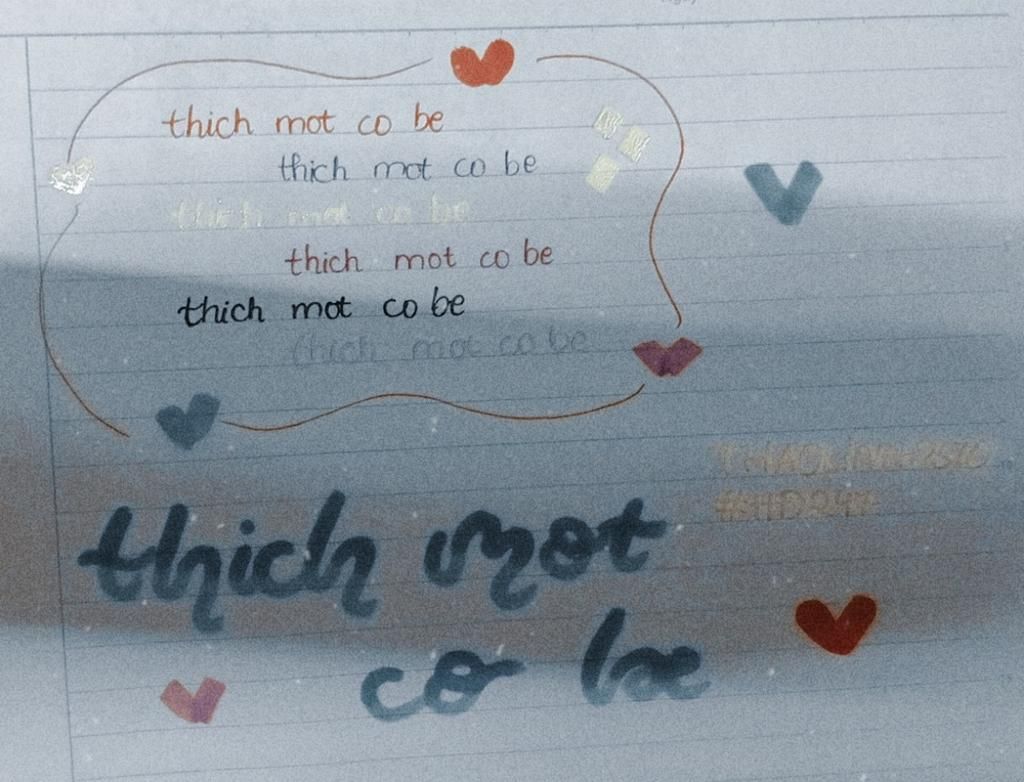 thich mot co be
thich mot co be
thich mot co be
thich mot co be
thich mot co be
thich mot co be
thich mot
co be